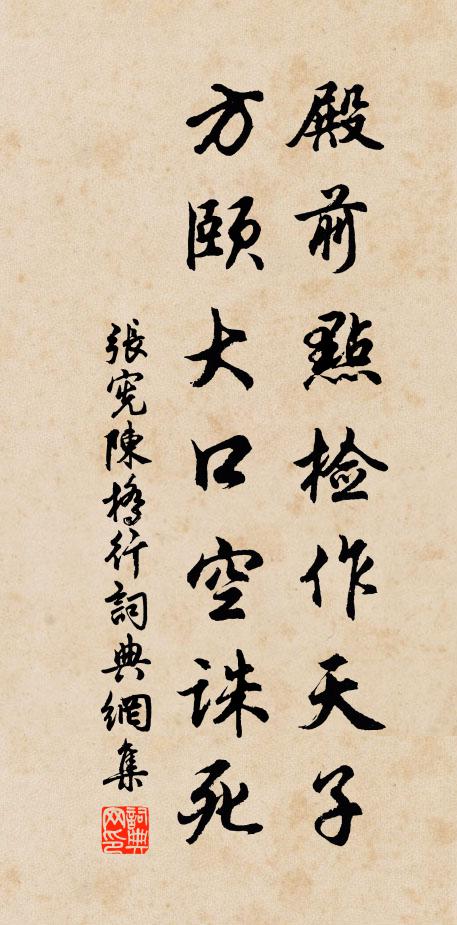 殿前點檢作天子
方頤大口空誅死
張憲陳橋行詞典網集
詞典網印